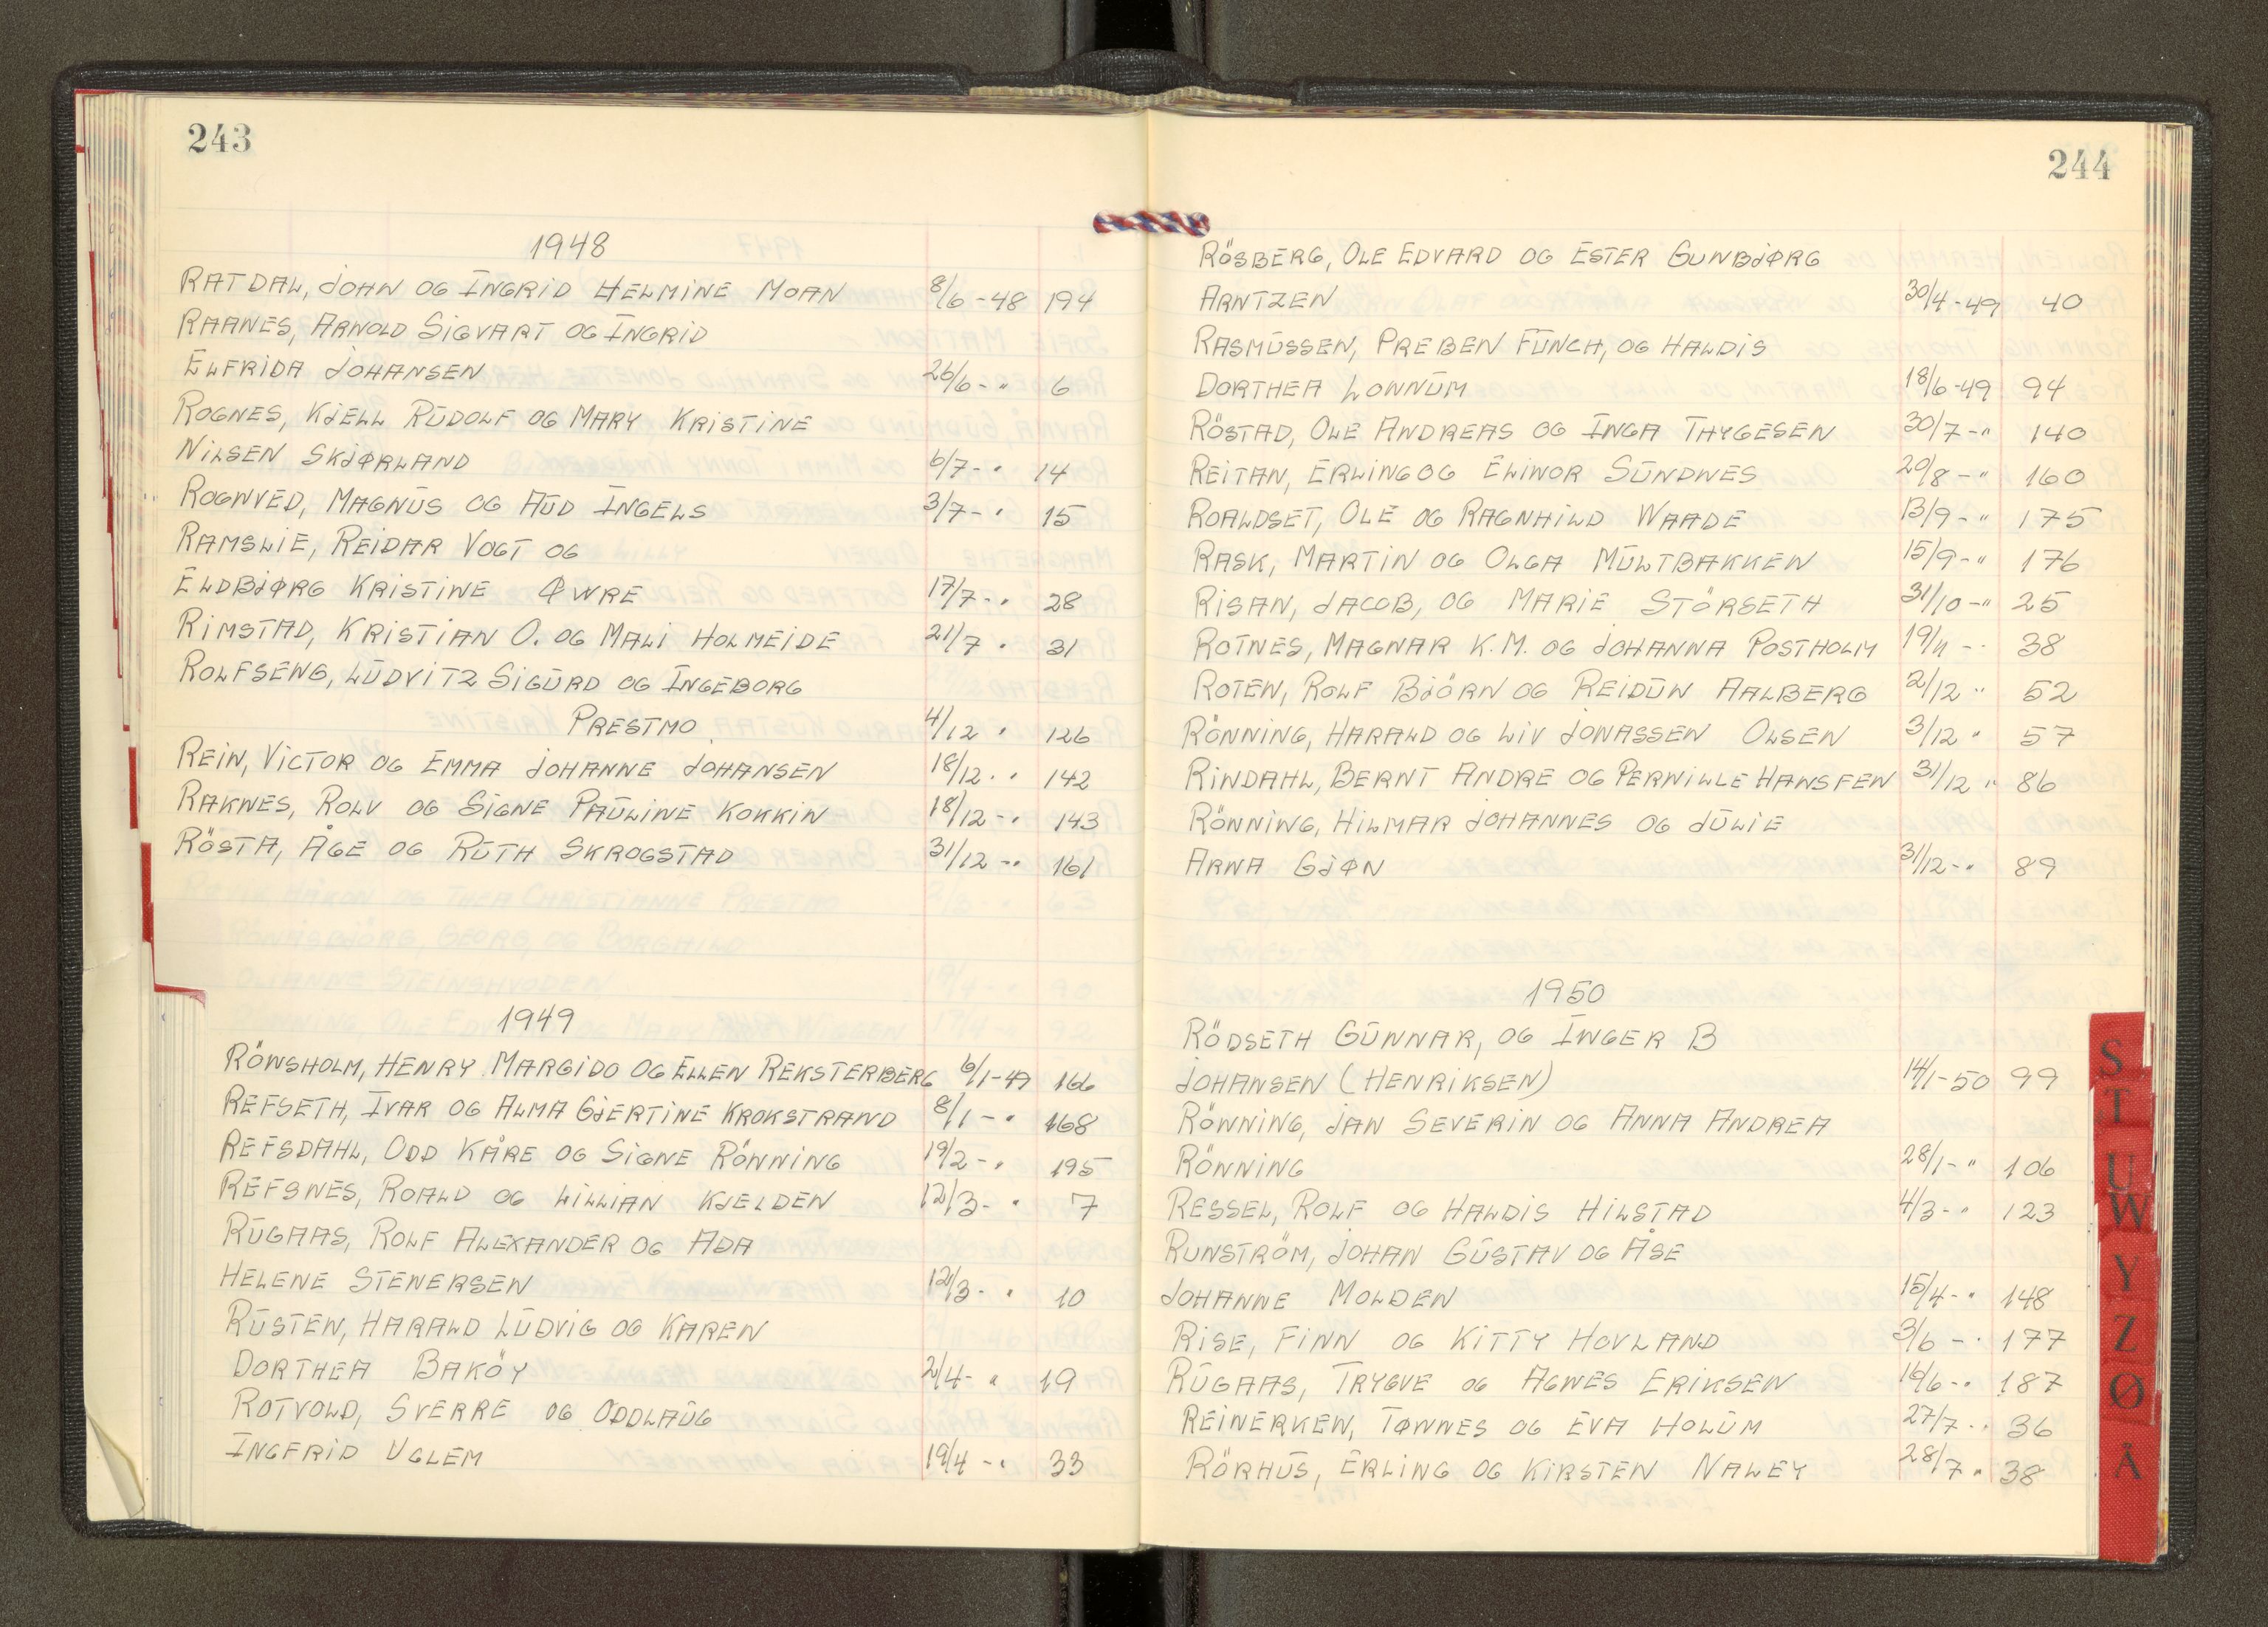 243
1948
RATDAL, JOHN OG INGRID HELMINE MOAN 8/6-48 194
RAANES, ARNOLD SIGVART OG INGRID
ELFRIDA JOHANSEN 26/6-" 6
ROGNES, KJELL RŪDOLF OG MARY KRISTINE
NILSEN SKJØRLAND 6/7-" 14
ROGNVED, MAGNŪS OG AŪD INGELS 3/7-" 15
RAMSLIE, REIDAR VOGT OG
ELDBJØRG KRISTINE ØWRE 17/7-" 28
RIMSTAD, KRISTIAN O. OG MALI HOLMEIDE 21/7 " 31
ROLFSENG, LŪDVITZ SIGŪRD OG INGEBORG
PRESTMO 4/12 " 126
REIN, VICTOR OG EMMA JOHANNE JOHANSEN 18/12-" 142
RAKNES, ROLV OG SIGNE PAŪLINE KOKKIN 18/12-" 143
RÖSTA, ÅGE OG RŪTH SKROGSTAD 31/12-" 161
1949
RÖNSHOLM, HENRY MARGIDO OG ELLEN REKSTERBERG 6/1-49 166
REFSETH, IVAR OG ALMA GJERTINE KROKSTRAND 8/1-" 168
REFSDAHL, ODD KÅRE OG SIGNE RÖNNING 19/2-" 195
REFSNES, ROALD OG LILLIAN KJELDEN 12/3-" 7
RŪGAAS, ROLF ALEXANDER OG ADA
HELENE STENERSEN 12/3-" 10
RŪSTEN, HARALD LŪDVIG OG KAREN
DORTHEA BAKÖY 2/4-" 19
ROTVOLD, SVERRE OG ODDLAŪG
INGFRID UGLEM 19/4-" 33
244
RÖSBERG, OLE EDVARD OG ESTER GUNBJØRG
ARNTZEN 30/4-49 40
RASMŪSSEN, PREBEN FŪNCH, OG HALDIS
DORTHEA LONNŪM 18/6-49 94
RÖSTAD, OLE ANDREAS OG INGA THYGESEN 30/7-" 140
REITAN, ERLING OG ELINOR SŪNDNES 20/8-" 160
ROALDSET, OLE OG RAGNHILD WAADE 13/9-" 175
RASK, MARTIN OG OLGA MŪLTBAKKEN 15/9-" 176
RISAN, JACOB, OG MARIE STÖRSETH 31/10-" 25
ROTNES, MAGNAR K.M. OG JOHANNA POSTHOLM 19/11-" 38
ROTEN, ROLF BJÖRN OG REIDŪN AALBERG 2/12 " 52
RÖNNING, HARALD OG LIV JONASSEN OLSEN 3/12 " 57
RINDAHL, BERNT ANDRE OG PERNILLE HANSFEN 31/12 " 86
RÖNNING, HILMAR JOHANNES OG JŪLIE
ARNA GJØN 31/12-" 89
1950
RÖDSETH GŪNNAR, OG INGER B
JOHANSEN (HENRIKSEN) 14/1-50 99
RÖNNING, JAN SEVERIN OG ANNA ANDREA
RÖNNING 28/1-" 106
RESSEL, ROLF OG HALDIS HILSTAD 4/3-" 123
RUNSTRÖM, JOHAN GŪSTAV OG ÅSE
JOHANNE MOLDEN 15/4-" 148
RISE, FINN OG KITTY HOVLAND 3/6-" 177
RŪGAAS, TRYGVE OG AGNES ERIKSEN 16/6-" 187
REINERKEN, TØNNES OG EVA HOLŪM 27/7-" 36
RÖRHŪS, ERLING OG KIRSTEN NALEY 28/7 " 38
S
T
U
W
Y
Z
Ø
Å